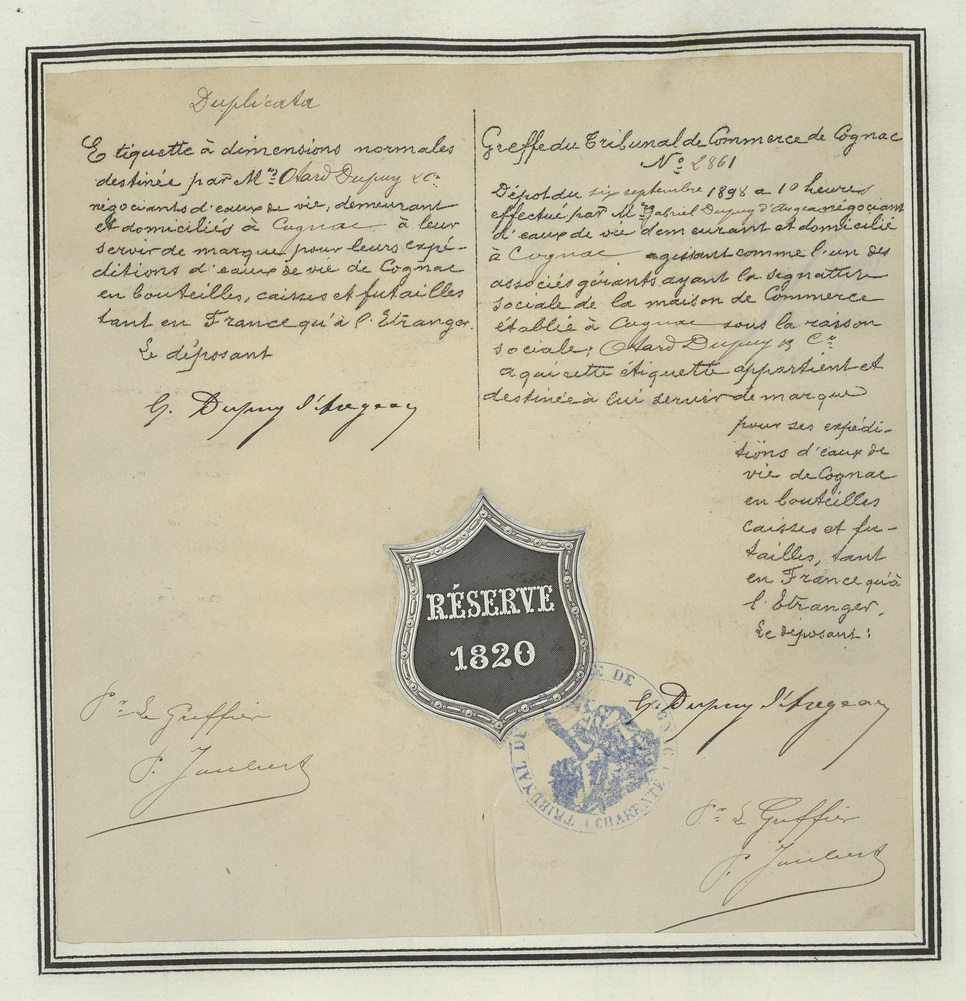 Duplicata
Etiquette à dimensions normales
destinée par Mrs Otard Dupuy & Co
négociants d'eaux de vie, demeurant
et domiciliés à Cognac à leur
servir de marque pour leurs expé-
ditions d'eaux de vie de Cognac
en bouteilles, caisses et futailles
tant en France qu'à l'Etranger.
Le déposant
G. Dupuy d'Angeac
Greffe du Tribunal de Commerce de Cognac
No 2861
Dépot du six septembre 1898 a 10 heures
effectué par Mr Gabriel Dupuy d'Angeac négociant
d'eaux de vie demeurant et domicilié
à Cognac agissant comme l'un des
associés gérants ayant la signature
sociale de la maison de Commerce
établie à Cognac sous la raison
sociale: Otard Dupuy & Co
a qui cette étiquette appartient et
destinée à lui servir de marque
pour ses expédi-
tions d'eaux de
vie de Cognac
en bouteilles
caisses et fu-
tailles, tant
en France qu'à
l'Etranger.
Le déposant:
G. Dupuy d'Angeac
RÉSERVE
1820
TRIBUNAL DE COGNAC
(CHARENTE)
Pr Le Greffier
P. Joubert
Pr Le Greffier
P. Joubert